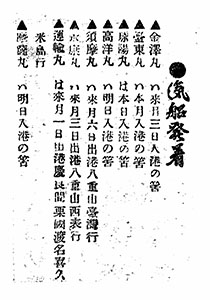 ●汽船發着
▲金澤丸 ハ來月三日入港の筈
▲臺東丸 ハ本月入港の筈
▲原陽丸 ハ本日入港の筈
▲高洋丸 ハ明日入港の筈
▲須摩丸 ハ來月六日出港八重山臺灣行
▲丸 ハ來月三日出港八重山西表行
▲運輸丸 は來月一日出港慶良間粟國渡名喜久
米島行
▲丸 ハ明日入港の筈